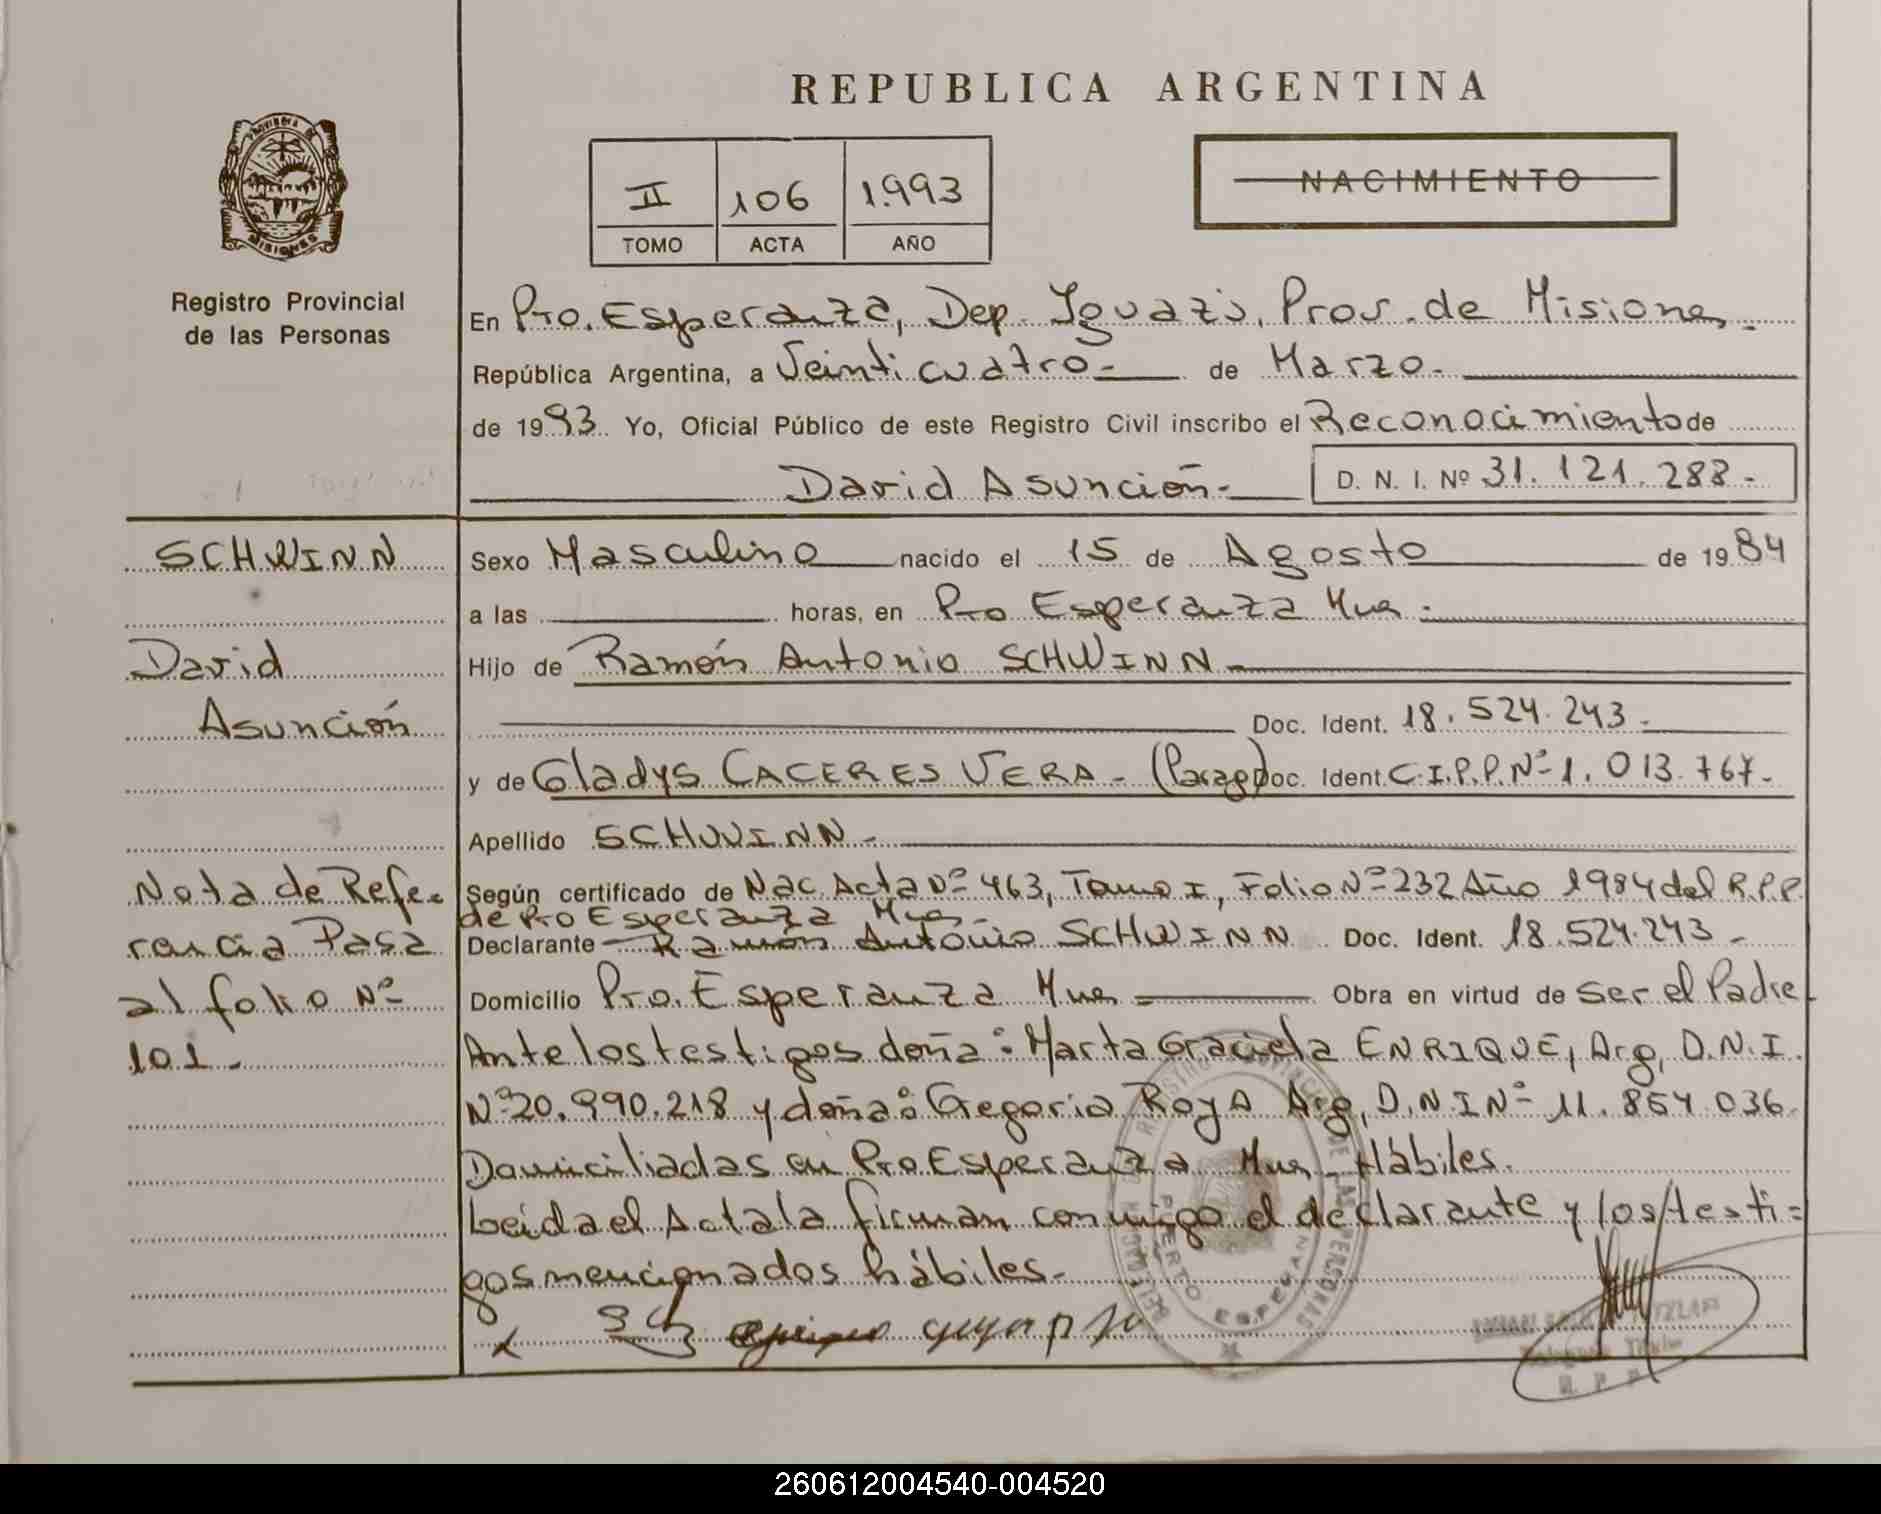 REPUBLICA ARGENTINA
PROVINCIA DE
MISIONES
Registro Provincial
de las Personas
II 106 1.993
TOMO ACTA AÑO
NACIMIENTO
En Pto. Esperanza, Dep. Iguazú, Prov. de Misiones.
República Argentina, a Veinticuatro.- de Marzo.-
de 1993. Yo, Oficial Público de este Registro Civil inscribo el Reconocimiento de
David Asunción.- D. N. I. Nº 31.121.288.-
SCHWINN
David
Asunción
Nota de Refe-
rencia Pasa
al folio Nº
101.-
Sexo Masculino nacido el 15 de Agosto de 1984
a las horas, en Pto Esperanza Mnes.-
Hijo de Ramón Antonio SCHWINN.-
Doc. Ident. 18.524.243.-
y de Gladys CACERES VERA.- (Parag) Doc. Ident. C.I.P.P.Nº 1.013.767.-
Apellido SCHWINN.-
Según certificado de Nac. Acta Nº 463, Tomo I, Folio Nº 232 Año 1984 del R.P.P.
de Pto Esperanza Mnes.
Declarante Ramón Antonio SCHWINN Doc. Ident. 18.524.243.-
Domicilio Pto. Esperanza Mnes Obra en virtud de Ser el Padre
Ante los testigos doña: Marta Graciela ENRIQUE, Arg, D.N.I.
Nº 20.990.218 y doña: Gregoria ROYA Arg, D.N.I Nº 11.854.036
Domiciliadas en Pto Esperanza Mnes - Hábiles.
Leida el Acta la firman conmigo el declarante y los testi-
gos mencionados hábiles.-
PUERTO ESPERANZA
R. P. P.
260612004540-004520